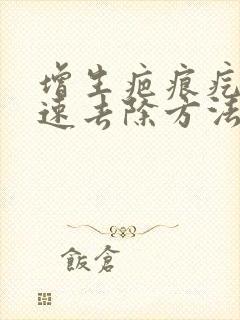 增生疤痕疙
速去除方法
飯倉